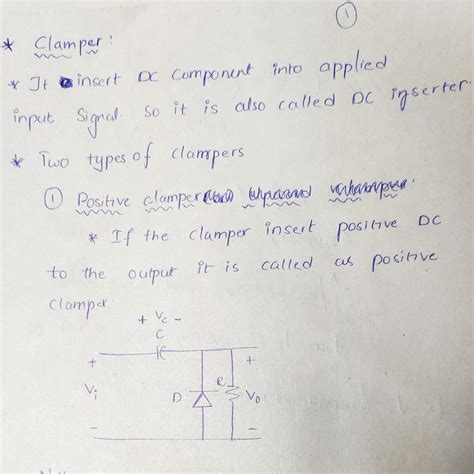 ①
* Clamper:
* It insert DC component into applied
input Signal. So it is also called DC inserter.
* Two types of clampers
① Positive clamper
* If the clamper insert positive DC
to the output it is called as positive
clamper.
+ Vc -
C
+ +
R
Vi D Vo
- -